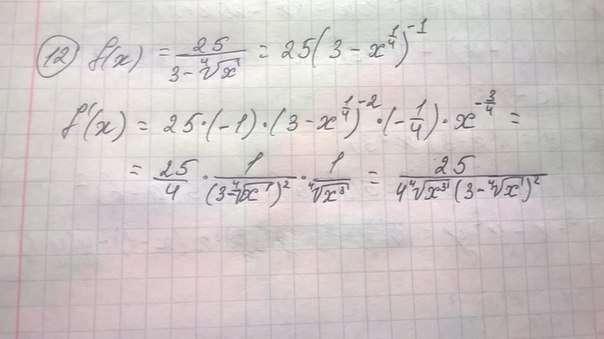 12) f(x) = 25/(3-⁴√x) = 25(3-x^(1/4))^(-1)
f'(x) = 25·(-1)·(3-x^(1/4))^(-2)·(-1/4)·x^(-3/4) =
= 25/4 · 1/(3-⁴√x)² · 1/⁴√x³ = 25/(4⁴√x³(3-⁴√x)²)